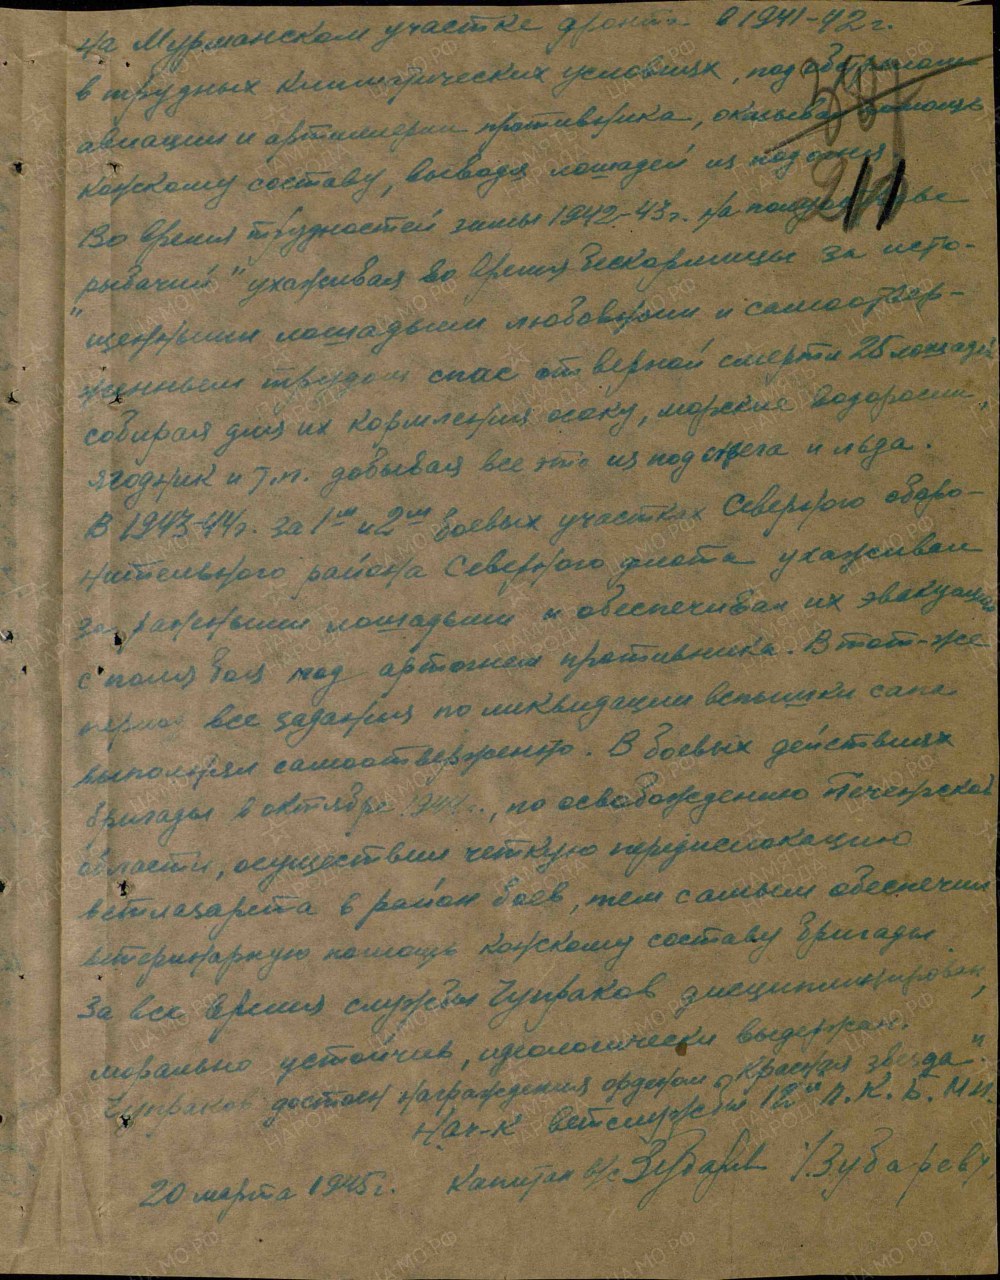 на Мурманском участке фронта в 1941-42 г.
в трудных климатических условиях, под обстрелом
авиации и артиллерии противника, оказывал помощь
конскому составу, выводя лошадей из под огня.
Во время трудностей зимы 1942-43 г. на полуострове
"рыбачий" ухаживая во время бескормицы за исто-
щенными лошадьми любовным и самоотвер-
женным трудом спас от верной смерти 25 лошадей
собирая для их кормления осоку, морские водоросли,
ягодник и т.п. добывая все это из под снега и льда.
В 1943-44 г. за 1ым и 2ым боевых участках Северного оборо-
нительного района Северного флота ухаживал
за ранеными лошадьми и обеспечивал их эвакуацию
с поля боя под артогнем противника. В тот-же
период все задания по ликвидации вспышки сапа
выполнял самоотверженно. В боевых действиях
бригады в октябре 1944 г., по освобождению Печенгской
области, осуществил четкую передислокацию
ветлазарета в район боев, тем самым обеспечил
ветеринарную помощь конскому составу бригады.
За все время службы Чупраков дисциплинирован,
морально устойчив, идеологически выдержан.
Чупраков достоин награждения орденом "Красная звезда".
Нач-к ветслужбы 12ой Л.К.Б.М.П.
Капитан в/с Зубарев /Зубарев/
20 марта 1945 г.
211